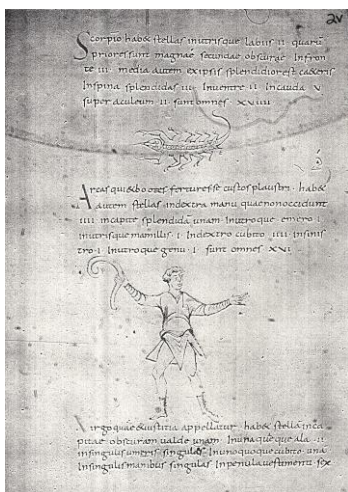 2v
Scorpio habet stellas inutrisque labiis ii quarū
priores sunt magnae secundae obscurae Infron
te iii media autem exipsis splendidior est caeteris
Inspina splendidas iii Inventre ii Incauda v
super aculeum ii sunt omnes xviiii
Arcas quietbootes fertur esse custos plaustri habet
autem stellas indextra manu quae non occidunt
iiii Incapite splendidā unam Inutroque umero i
inutrisque mamillis i Indextro cubito iiii insinis
tro i Inutroque genu i sunt omnes xxi
Virgo quae et iustitia appellatur habet stellā inca
pitae obscuram valde unam Inunaqueque ala ii
insingulis umeris singulas Inunoquoque cubito una
Insingulis manibus singulas Inpenula vestimenti sex